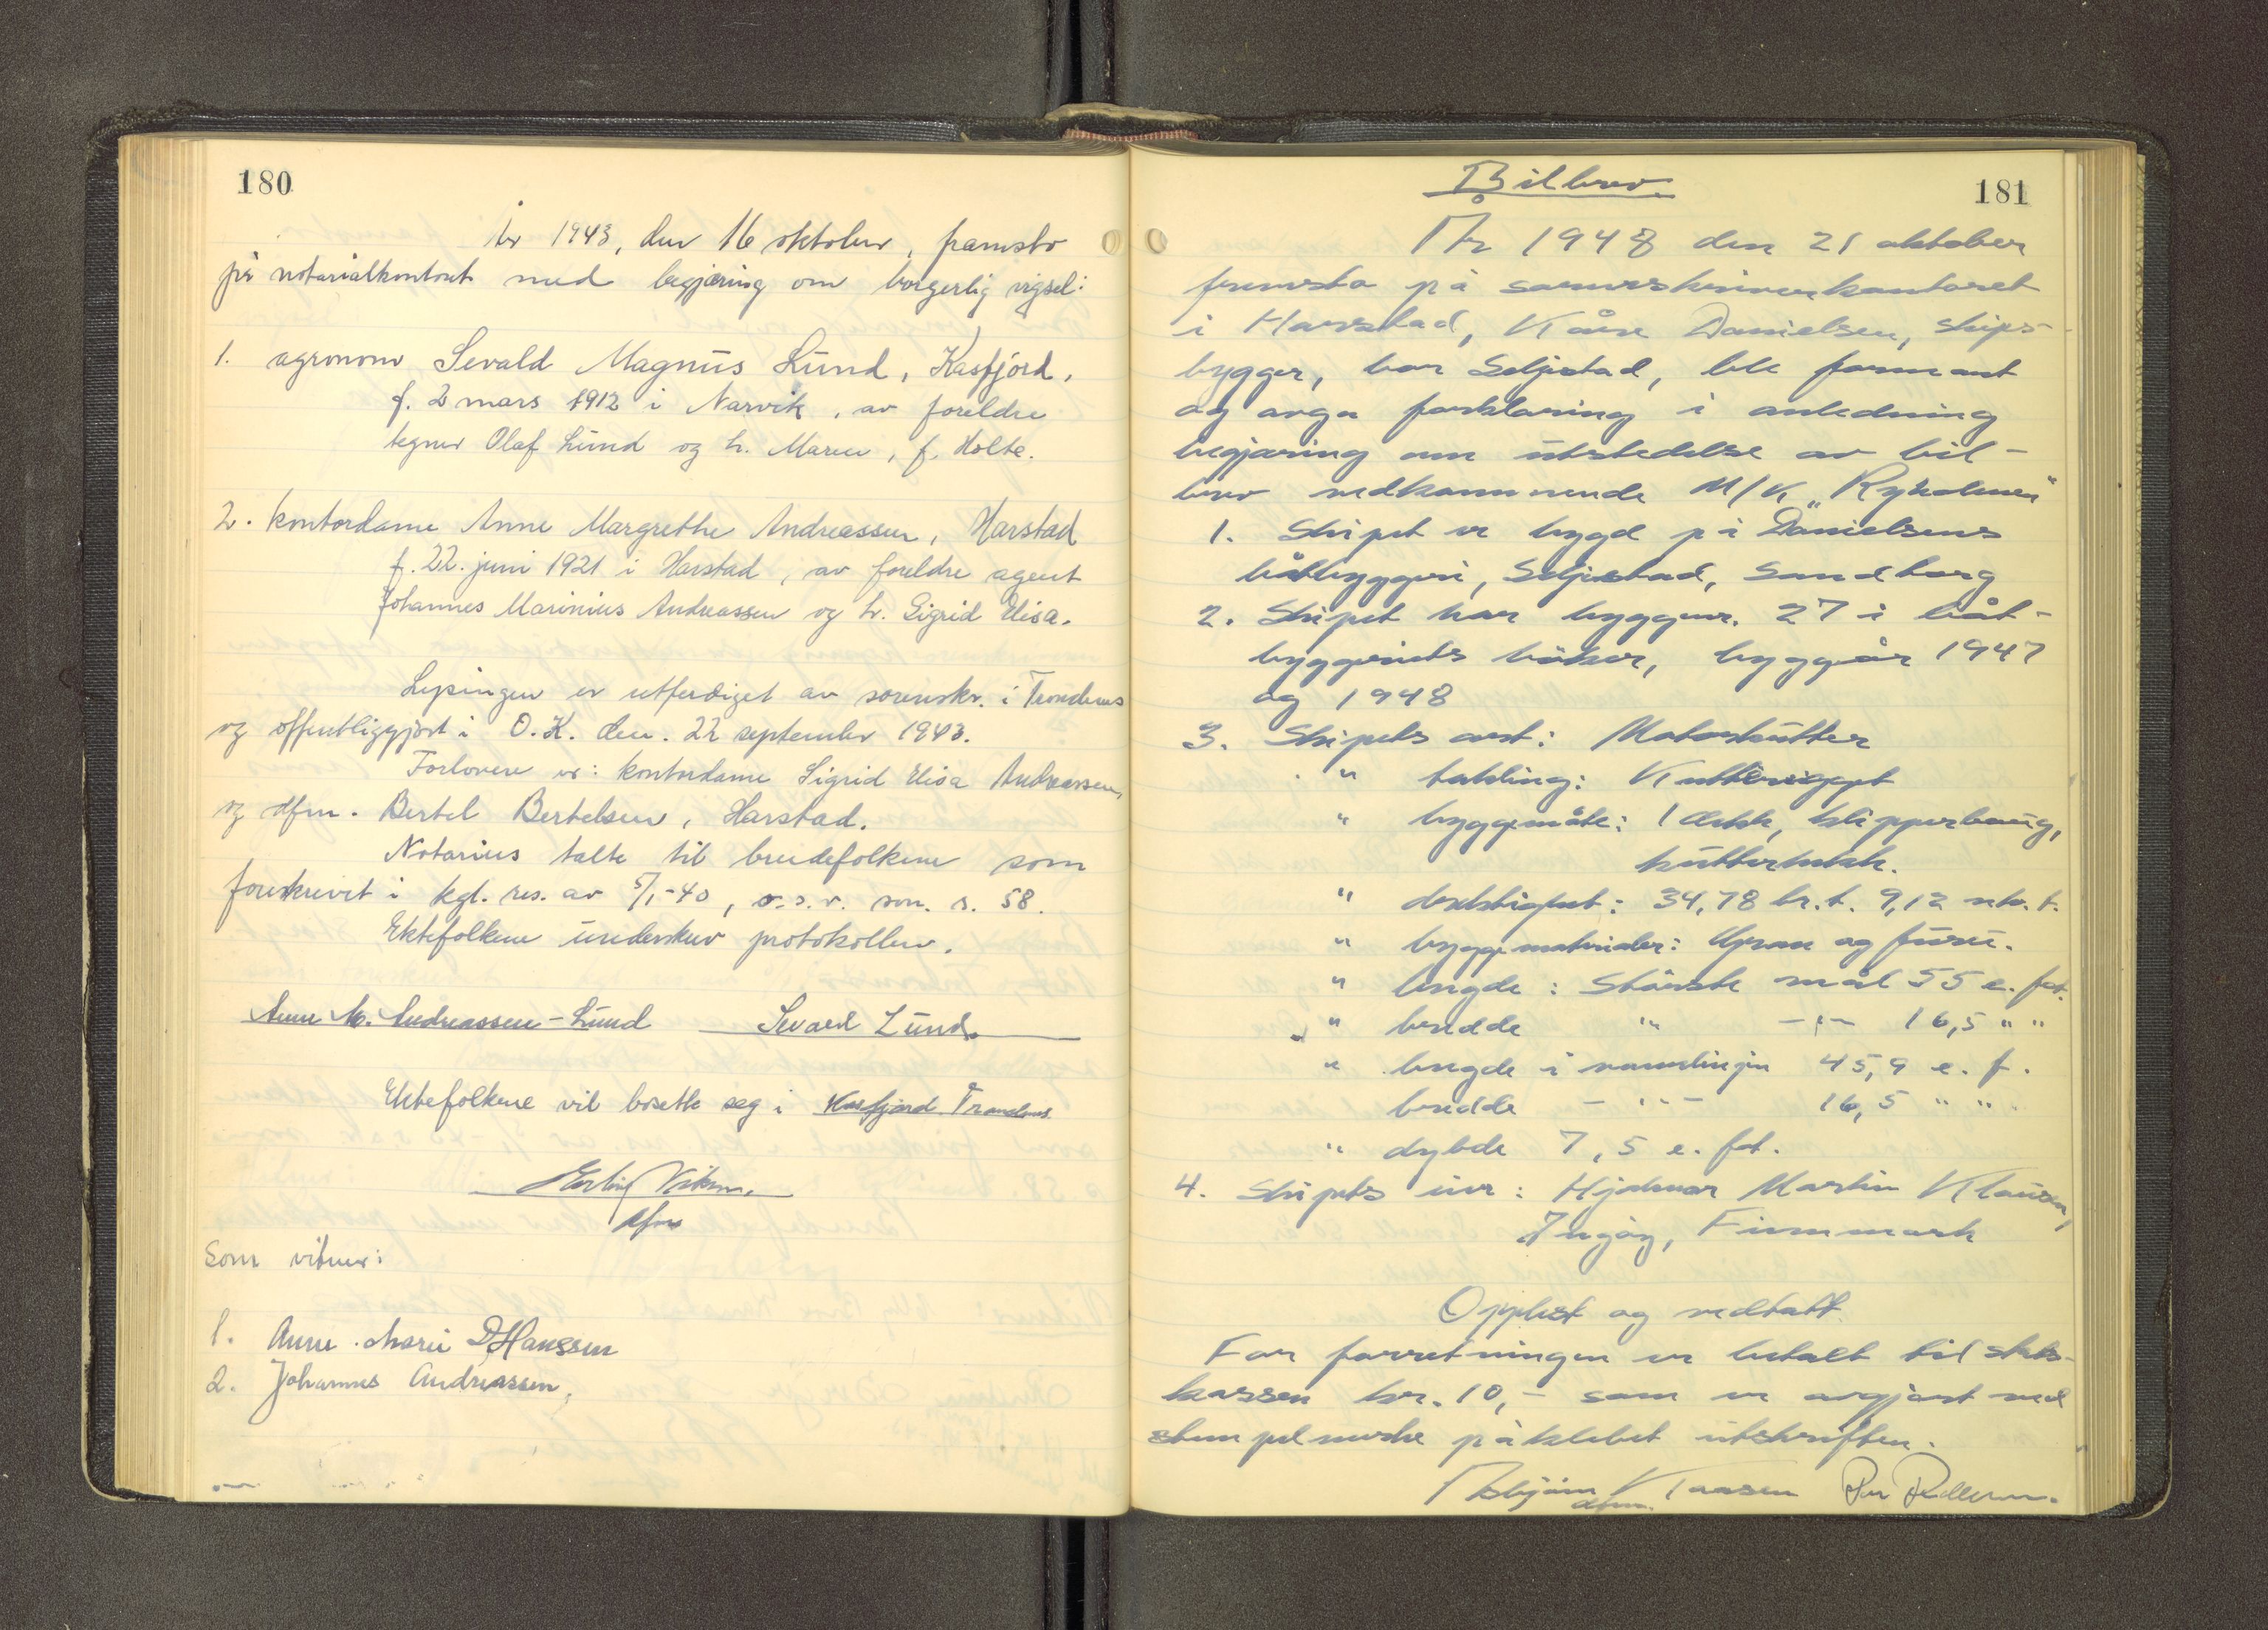 180
År 1943, den 16 oktober, framsto
på notarialkontoret med begjæring om borgerlig vigsel:
1. agronom Sevald Magnus Lund, Kasfjord,
f. 2 mars 1912 i Narvik, av foreldre
tegner Olaf Lund og h. Maren, f. Holte.
2. kontordame Anne Margrethe Andreassen, Harstad
f. 22. juni 1921 i Harstad, av foreldre agent
Johannes Marinius Andreassen og h. Sigrid Elisa.
Lysingen er utferdiget av sorenskr. i Trondenes
og offentliggjort i O. K. den. 22 september 1943.
Forlovere er: kontordame Sigrid Elisa Andreassen,
og dfm. Bertel Bertelsen, Harstad.
Notarius talte til brudefolkene som
foreskrevet i kgl. res. av 5/1-40, o.s.v. som. s. 58.
Ektefolkene underskrev protokollen.
Anne M. Andreassen-Lund Sevald Lund
Ektefolkene vil bosette seg i Kasfjord Trondenes
dfm
Som vitner:
1. Anne Marie D Hanssen
2. Johannes Andreassen,
181
Bilbrev
År 1948 den 21 oktober
fremsto på sorenskriverkontoret
i Harstad, Kåre Danielsen, skips-
bygger, bor Seljestad, ble formant
og avga forklaring i anledning
begjæring om utstedelse av bil-
brev vedkommende M/K "Rykolmen"
1. Skipet er bygd på Danielsens
båtbyggeri, Seljestad, Sandtorg
2. Skipet har byggenr. 27 i båt-
byggeriets bøker, byggeår 1947
og 1948
3. Skipets art: Motorkutter
" takling: Kutterigget
" byggemåte: 1 dekk, klipperbaug,
kutterhekk.
" drektighet: 34,78 br.t. 9,12 nto. t.
" byggematerialer: Gran og furu.
" lengde: Største mål 55 e. fot.
" bredde " -"- 16,5 " "
" lengde i vannlinjen 45,9 e. f.
bredde -"- 16,5 " "
" dybde 7,5 e. fot.
4. Skipets eier: Hjalmar Martin Klausen,
Ingøy, Finnmark
Opplest og vedtatt.
For forretningen er betalt til stats-
kassen kr. 10,- som er avgjort med
stempelmerke påklebet utskriften.
Asbjørn Klaasen Per Pedersen.
dfm.